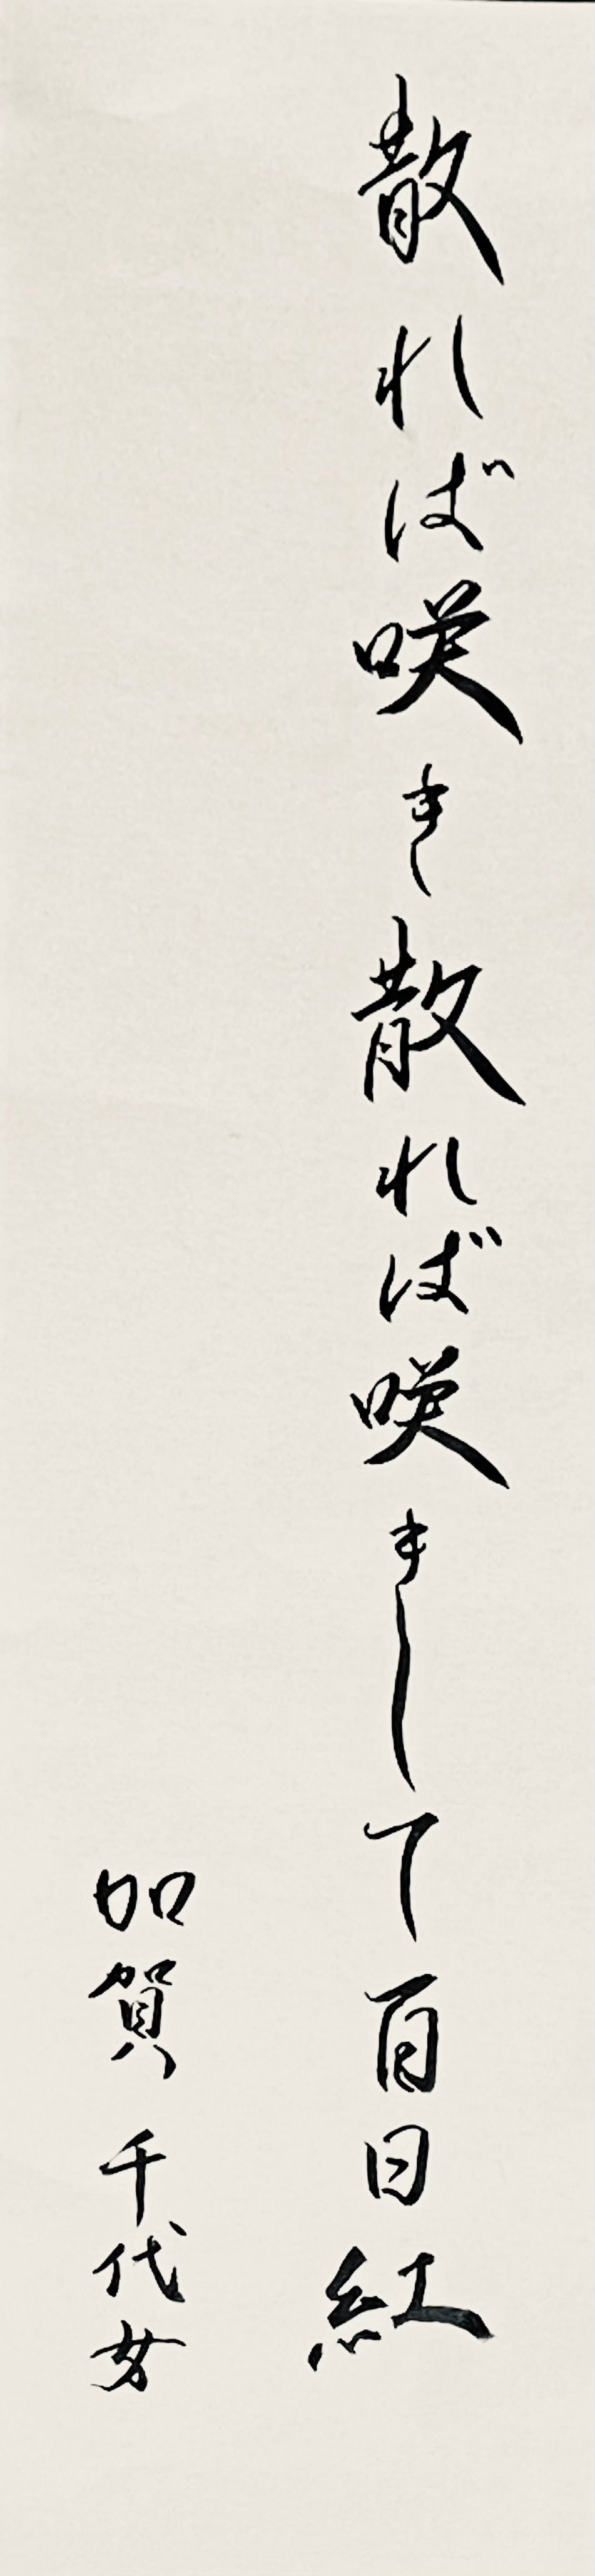 散れば咲き散れば咲きして百日紅
加賀 千代女